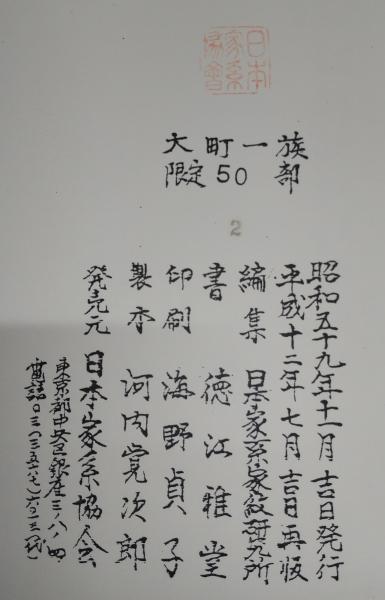 日本
家系
協會
大町一族
限定50部
2
昭和五十九年十一月吉日発行
平成十二年七月吉日再版
編集 日本家系家紋研究所
書 徳江雅堂
印刷 海野貞子
製本 河内寛次郎
発売元 日本家系協会
東京都中央区銀座三ノ八ノ四
電話〇三(三五六七)六一三一(代)